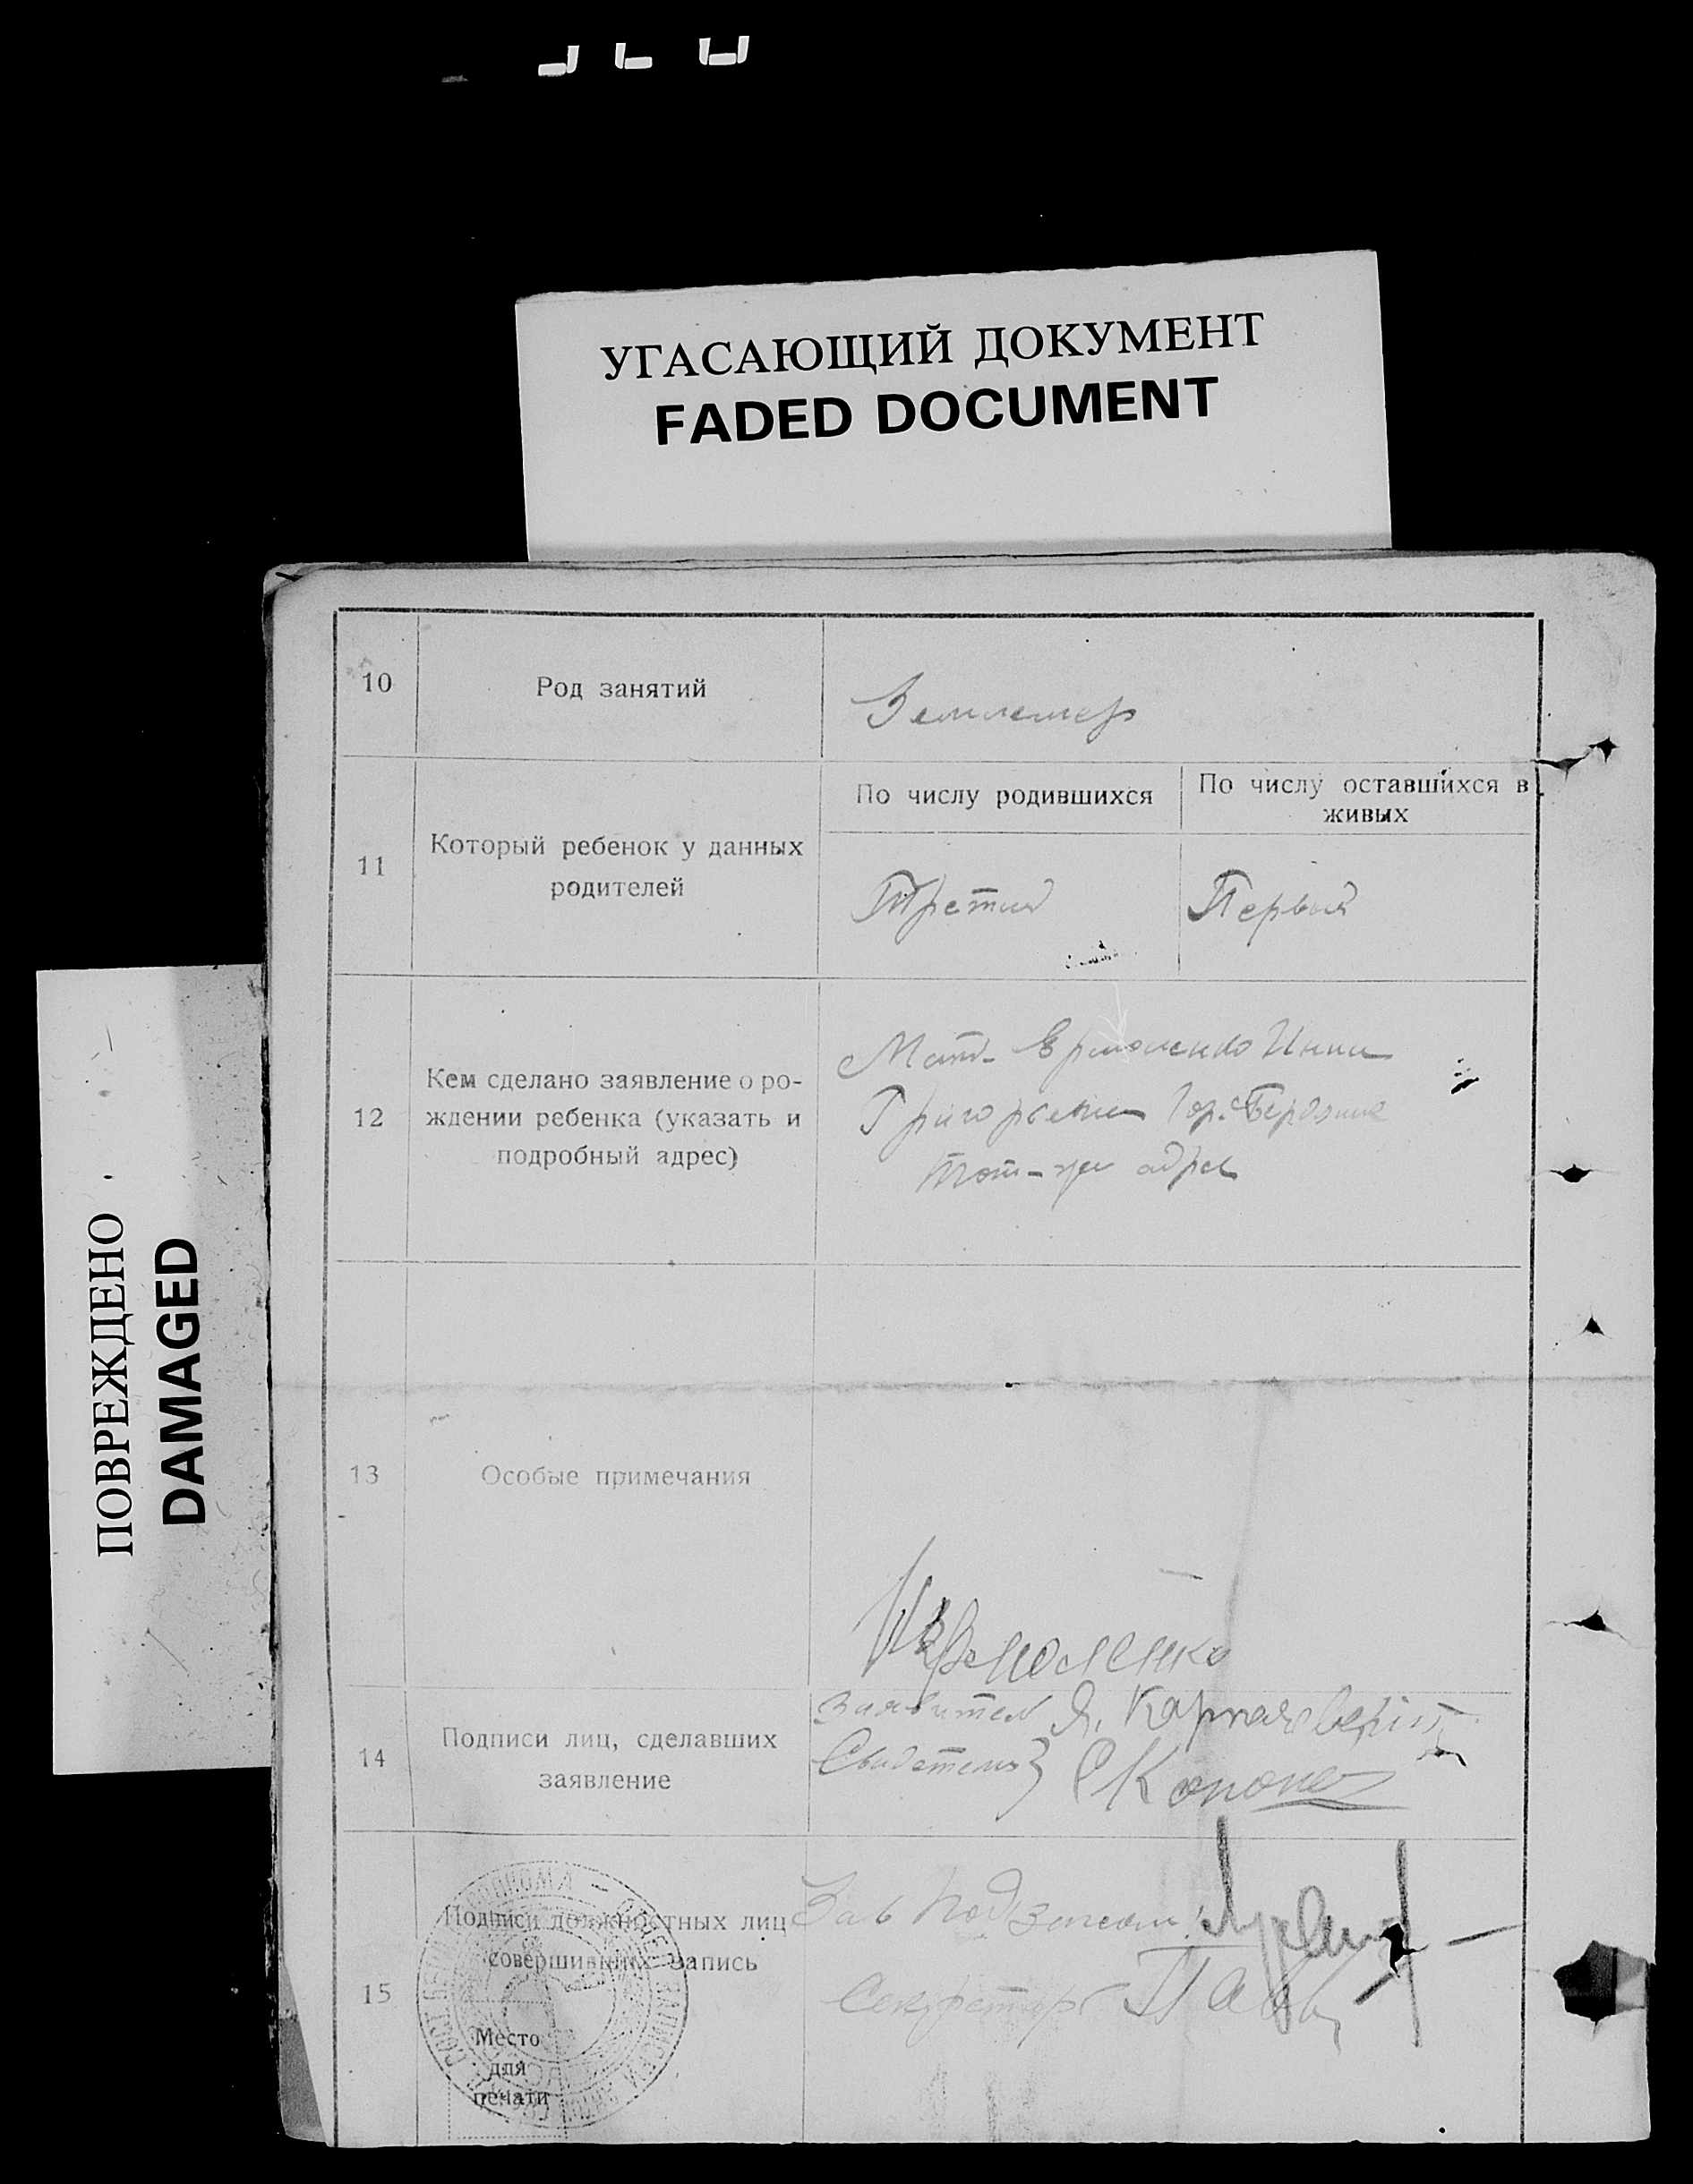 УГАСАЮЩИЙ ДОКУМЕНТ
FADED DOCUMENT
ПОВРЕЖДЕНО
DAMAGED
10
Род занятий
Землемер
11
Который ребенок у данных
родителей
По числу родившихся
По числу оставшихся в
живых
Третий
Первый
12
Кем сделано заявление о ро-
ждении ребенка (указать и
подробный адрес)
Мать Ермоленко Нина
Григорьевна Гор. Бердянск
тот-же адрес
13
Особые примечания
Ермоленко
14
Подписи лиц, сделавших
заявление
Заявитель
Свидетели
15
Подписи должностных лиц
совершивших запись
Место
для
печати
Зав
Секретарь